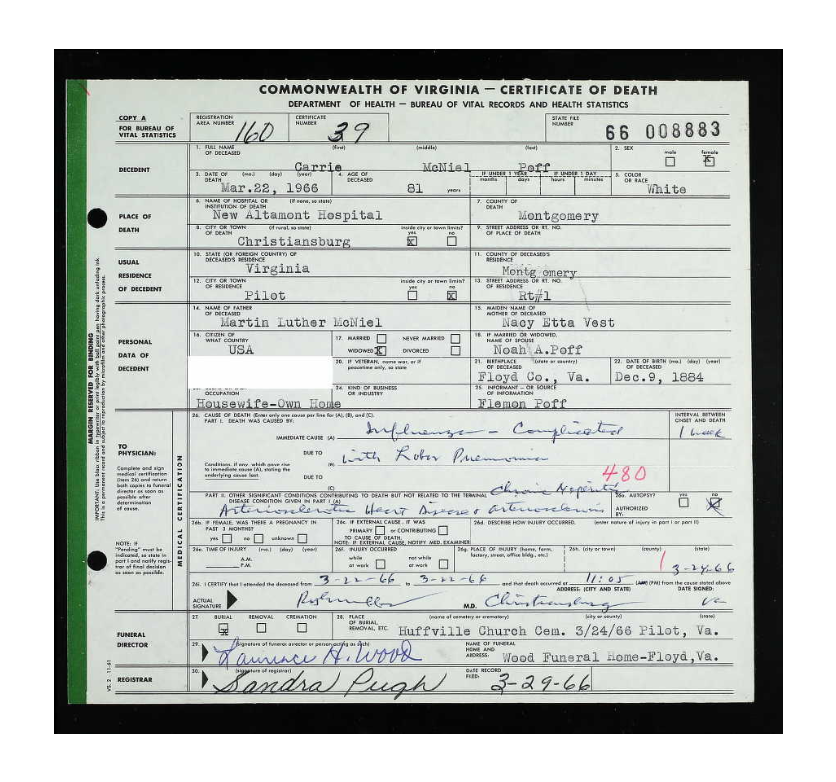 COMMONWEALTH OF VIRGINIA — CERTIFICATE OF DEATH
DEPARTMENT OF HEALTH — BUREAU OF VITAL RECORDS AND HEALTH STATISTICS
COPY A
FOR BUREAU OF VITAL STATISTICS
REGISTRATION AREA NUMBER 160
CERTIFICATE NUMBER 39
STATE FILE NUMBER 66 008883
DECEDENT
1. FULL NAME OF DECEASED (first) (middle) (last)
Carrie McNiel Poff
2. SEX male female X
3. DATE OF DEATH (mo.) (day) (year)
Mar.22, 1966
4. AGE OF DECEASED 81 years
IF UNDER 1 YEAR months days
IF UNDER 1 DAY hours minutes
5. COLOR OR RACE White
PLACE OF DEATH
6. NAME OF HOSPITAL OR INSTITUTION OF DEATH (if none, so state)
New Altamont Hospital
7. COUNTY OF DEATH
Montgomery
8. CITY OR TOWN OF DEATH (if rural, so state)
Christiansburg
inside city or town limits? yes X no
9. STREET ADDRESS OR RT. NO. OF PLACE OF DEATH
USUAL RESIDENCE OF DECEDENT
10. STATE (OR FOREIGN COUNTRY) OF DECEASED'S RESIDENCE
Virginia
11. COUNTY OF DECEASED'S RESIDENCE
Montgomery
12. CITY OR TOWN OF RESIDENCE
Pilot
inside city or town limits? yes no X
13. STREET ADDRESS OR RT. NO. OF RESIDENCE
Rt#1
PERSONAL DATA OF DECEDENT
14. NAME OF FATHER OF DECEASED
Martin Luther McNiel
15. MAIDEN NAME OF MOTHER OF DECEASED
Nacy Etta Vest
16. CITIZEN OF WHAT COUNTRY
USA
17. MARRIED NEVER MARRIED
WIDOWED X DIVORCED
18. IF MARRIED OR WIDOWED, NAME OF SPOUSE
Noah A.Poff
20. IF VETERAN, name war, or if peacetime only, so state
21. BIRTHPLACE OF DECEASED (state or country)
Floyd Co., Va.
22. DATE OF BIRTH (mo.) (day) (year) OF DECEASED
Dec.9, 1884
OCCUPATION
Housewife-Own Home
24. KIND OF BUSINESS OR INDUSTRY
25. INFORMANT - OR SOURCE OF INFORMATION
Flemon Poff
MARGIN RESERVED FOR BINDING
TO PHYSICIAN:
Complete and sign medical certification (item 26) and return both copies to funeral director as soon as possible after determination of cause.
NOTE: If "Pending" must be indicated, so state in part I and notify registrar of final decision as soon as possible.
MEDICAL CERTIFICATION
26. CAUSE OF DEATH (Enter only one cause per line for (A), (B), and (C).
PART I. DEATH WAS CAUSED BY:
INTERVAL BETWEEN ONSET AND DEATH
IMMEDIATE CAUSE (A) Influenza - Complicated 1 week
DUE TO (B) with Lobar Pneumonia
Conditions, if any, which gave rise to immediate cause (A), stating the underlying cause last.
DUE TO (C)
480
PART II. OTHER SIGNIFICANT CONDITIONS CONTRIBUTING TO DEATH BUT NOT RELATED TO THE TERMINAL DISEASE CONDITION GIVEN IN PART I (A)
Chronic
Arteriosclerotic Heart Disease arteriosclerosis
26a. AUTOPSY? yes no X
AUTHORIZED BY:
26b. IF FEMALE, WAS THERE A PREGNANCY IN PAST 3 MONTHS?
yes no unknown
26c. IF EXTERNAL CAUSE, IT WAS
PRIMARY or CONTRIBUTING
TO CAUSE OF DEATH.
NOTE: IF EXTERNAL CAUSE, NOTIFY MED. EXAMINER
26d. DESCRIBE HOW INJURY OCCURRED. (enter nature of injury in part I or part II)
26e. TIME OF INJURY (mo.) (day) (year)
A.M.
P.M.
26f. INJURY OCCURRED
while at work not while at work
26g. PLACE OF INJURY (home, farm, factory, street, office bldg., etc.)
26h. (city or town) (county) (state)
3-24-66
26i. I CERTIFY that I attended the deceased from 3-22-66 to 3-22-66 and that death occurred at 11:05 (AM) (PM) from the cause stated above
ADDRESS: (CITY AND STATE) DATE SIGNED:
ACTUAL SIGNATURE M.D. Christiansburg Va
FUNERAL DIRECTOR
27. BURIAL X REMOVAL CREMATION
28. PLACE OF BURIAL, REMOVAL, ETC. (name of cemetery or crematory) (city or county) (state)
Huffville Church Cem. 3/24/66 Pilot, Va.
29. (signature of funeral director or person acting as such)
Laurence H. Wood
NAME OF FUNERAL HOME AND ADDRESS:
Wood Funeral Home-Floyd,Va.
REGISTRAR
30. (signature of registrar)
Sandra Pugh
DATE RECORD FILED:
3-29-66